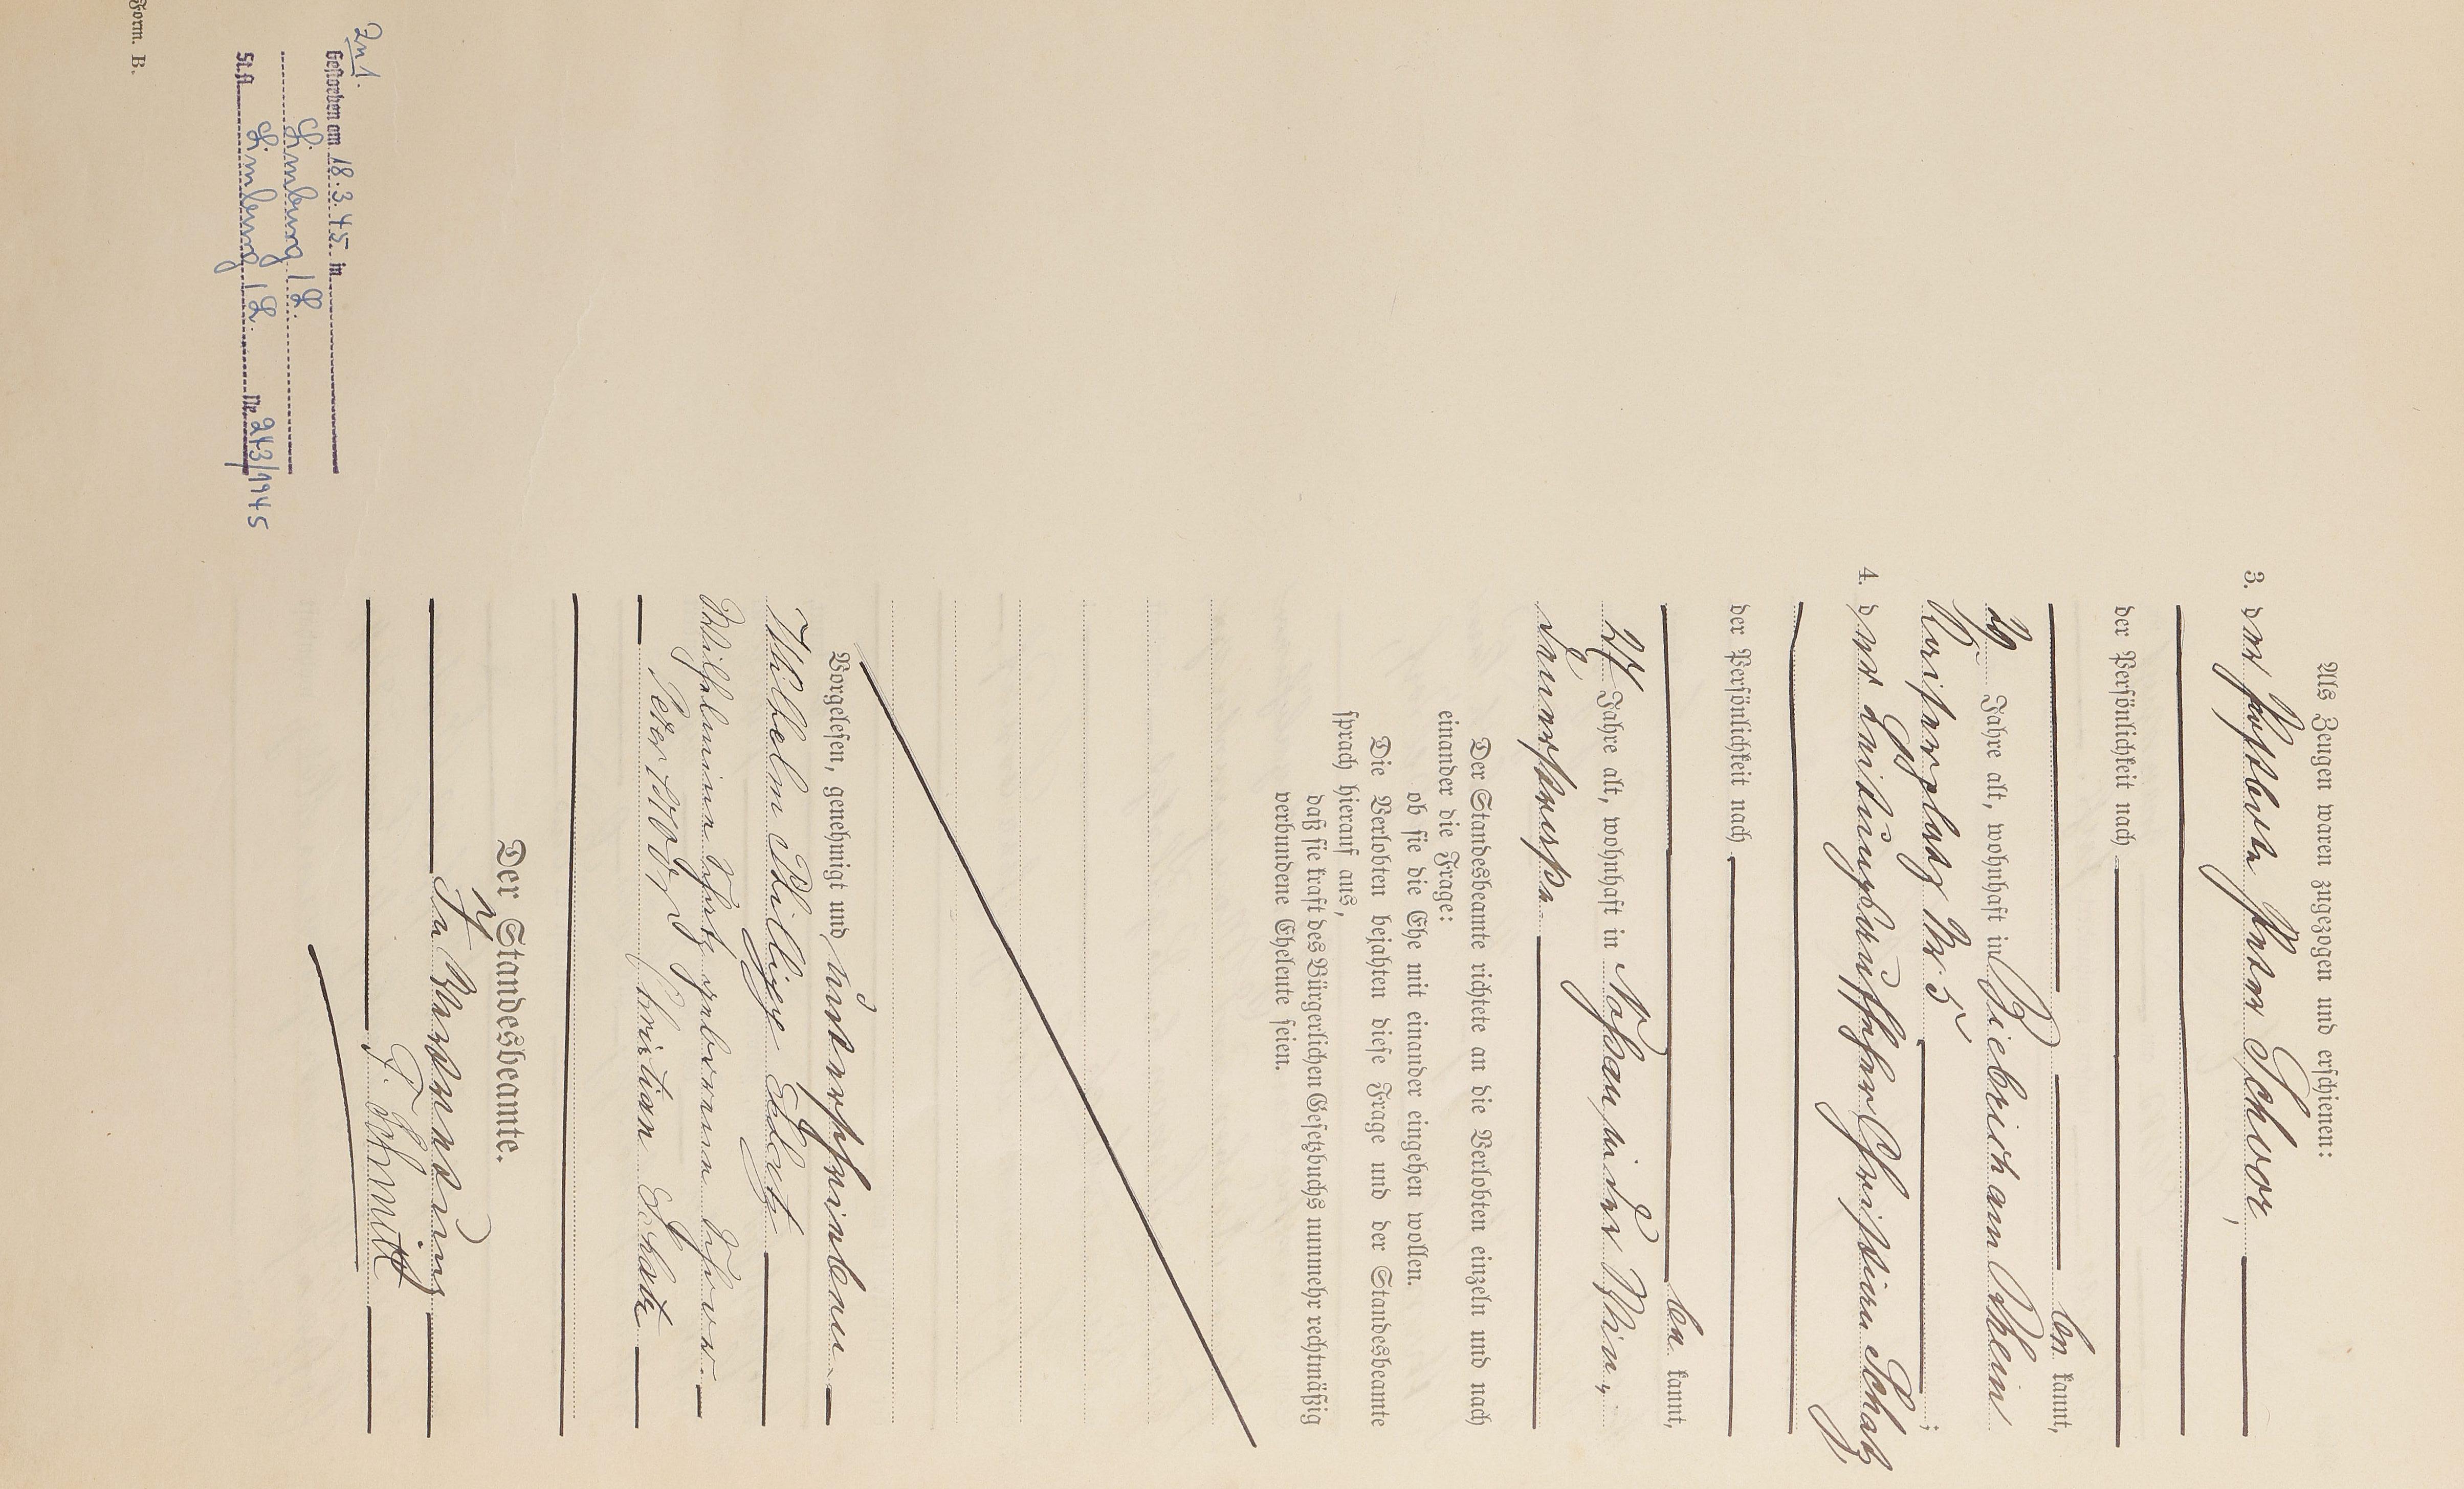 Als Zeugen waren zugezogen und erschienen:
3. der Schlosser Peter Schwor,
der Persönlichkeit nach
be kannt,
29 Jahre alt, wohnhaft in Biebrich am Rhein
Kaiserplatz Nr 5;
4. der Christian Schatz
der Persönlichkeit nach
be kannt,
24 Jahre alt, wohnhaft in
Der Standesbeamte richtete an die Verlobten einzeln und nach
einander die Frage:
ob sie die Ehe mit einander eingehen wollen.
Die Verlobten bejahten diese Frage und der Standesbeamte
sprach hierauf aus,
daß sie kraft des Bürgerlichen Gesetzbuchs nunmehr rechtmäßig
verbundene Eheleute seien.
Vorgelesen, genehmigt und unterschrieben
Wilhelm Philipp
Wilhelmine geborene
Peter
Christian Schatz
Der Standesbeamte.
In Vertretung
F. Schmitt
Gestorben am 18.3.45 in
Limburg / L.
St.A. Limburg / L. Nr. 243/1945
Form. B.